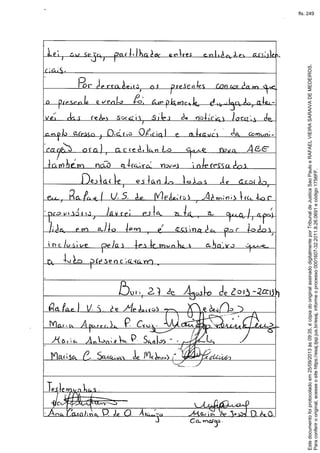 fls. 249
Lei, ou seja, partilhados entres entidades assisten-
ciais.
Por derradeiro, os presentes concordam que
o presente evento foi amplamente divulgado, atra-
vés das redes sociais, sites de notícias locais de
amplo acesso, Diário Oficial e através da comuni-
cação oral, acreditando que nova AGE
também não atrairá novos interessados.
Destarte, estando todos de acordo,
eu, Rafael V. S. de Medeiros, Administrador
provisório, lavrei esta ata, a qual, após
lida em alto tom, é assinada por todos,
inclusive pelas testemunhas abaixo que
a tudo presenciaram.
27 de Agosto de 2013
Rafael V. S. de Medeiros
Maria Aparecida P. Cruz
Maria Antonieta P. Santos
Marisa C. Saraiva de Medeiros
Testemunhas
Ana Carolina D. de O. Araujo
Maria de D. de O.
Camargo
Este documento foi protocolado em 25/09/2013 às 09:35, é cópia do original assinado digitalmente por Tribunal de Justica Sao Paulo e RAFAEL VIEIRA SARAIVA DE MEDEIROS.